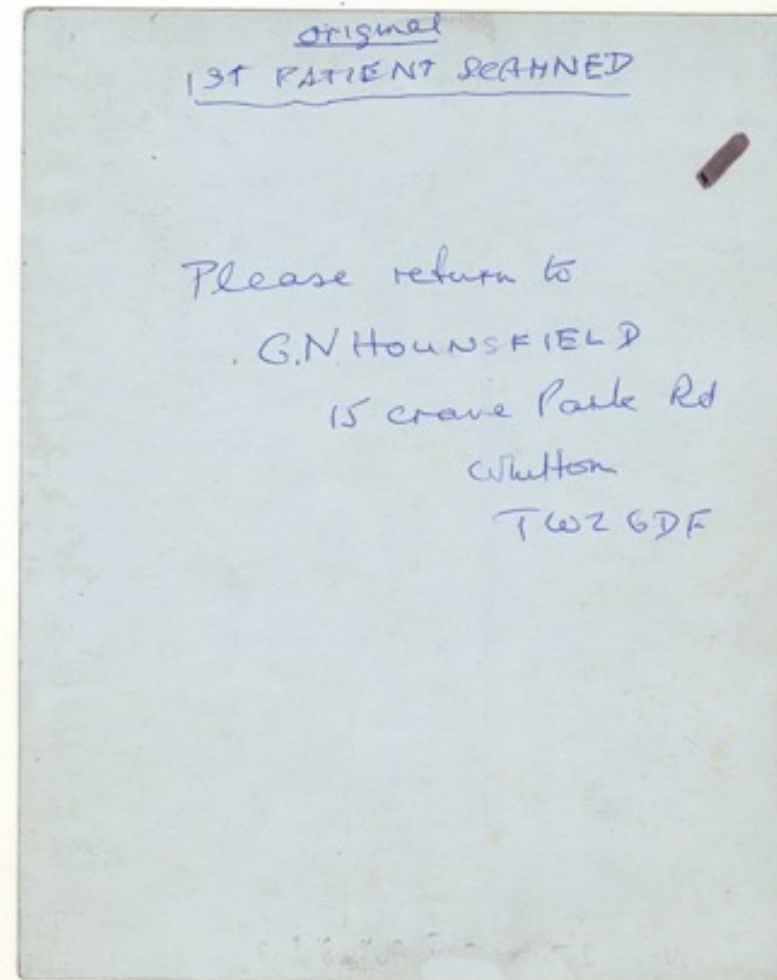 original
1ST PATIENT SCANNED
Please return to
G.N. HOUNSFIELD
15 Crane Park Rd
Whitton
TW2 6DF